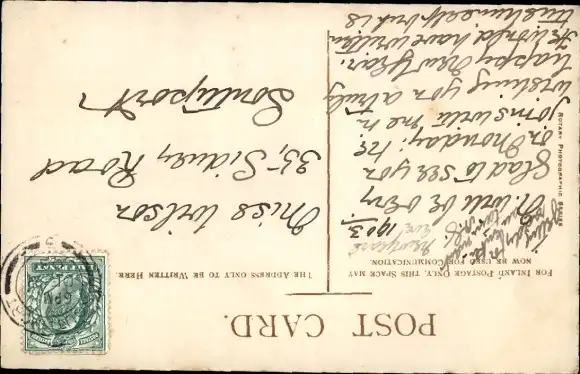 POST CARD.
FOR INLAND POSTAGE ONLY, THIS SPACE MAY
NOW BE USED FOR COMMUNICATION.
THE ADDRESS ONLY TO BE WRITTEN HERE.
1903.
M. will be very
Glad to see you
on Monday; he
joins with me in
wishing you a truly
happy New Year.
He would have written
this himself but is
Miss Wilson
35, Sidney Road
Southport
ROTARY PHOTOGRAPHIC SERIES
HALFPENNY